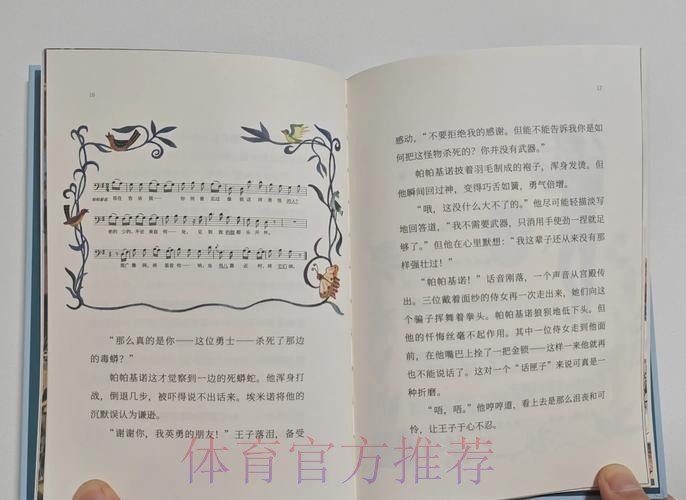 16
“那么真的是你——这位勇士——杀死了那边
的毒蟒？”
帕帕基诺这才觉察到一边的死蟒蛇。他浑身打
战，倒退几步，被吓得说不出话来。埃米诺将他的
沉默误认为谦逊。
“谢谢你，我英勇的朋友！”王子落泪，备受
17
感动，“不要拒绝我的感谢。但能不能告诉我你是如
何把这怪物杀死的？你并没有武器。”
帕帕基诺披着羽毛制成的袍子，浑身发烫。但
他瞬间回过神，变得巧舌如簧，勇气倍增。
“哦，这没什么大不了的。”他尽可能轻描淡写
地回答道，“我不需要武器，只消用手使劲一捏就足
够了。”但他在心里默想：“我这辈子还从来没有那
样强壮过！”
“帕帕基诺！”话音刚落，一个声音从宫殿传
出。三位戴着面纱的侍女再一次走出来，她们向这
个骗子挥舞着拳头。帕帕基诺狼狈地低下头。但
他的忏悔丝毫不起作用。其中一位侍女走到他面
前，在他嘴巴上拴了一把金锁——这样一来他就再
也不能说话了。这对一个“话匣子”来说可真是一
种折磨。
“唔，唔。”他哼哼道，看上去是那么沮丧和可
怜，让王子于心不忍。
体育官方推荐